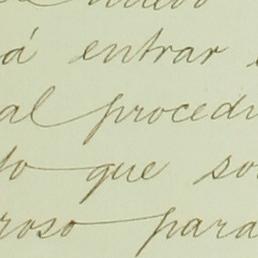 nuevo
á entrar
al procedi
to que so
roso para